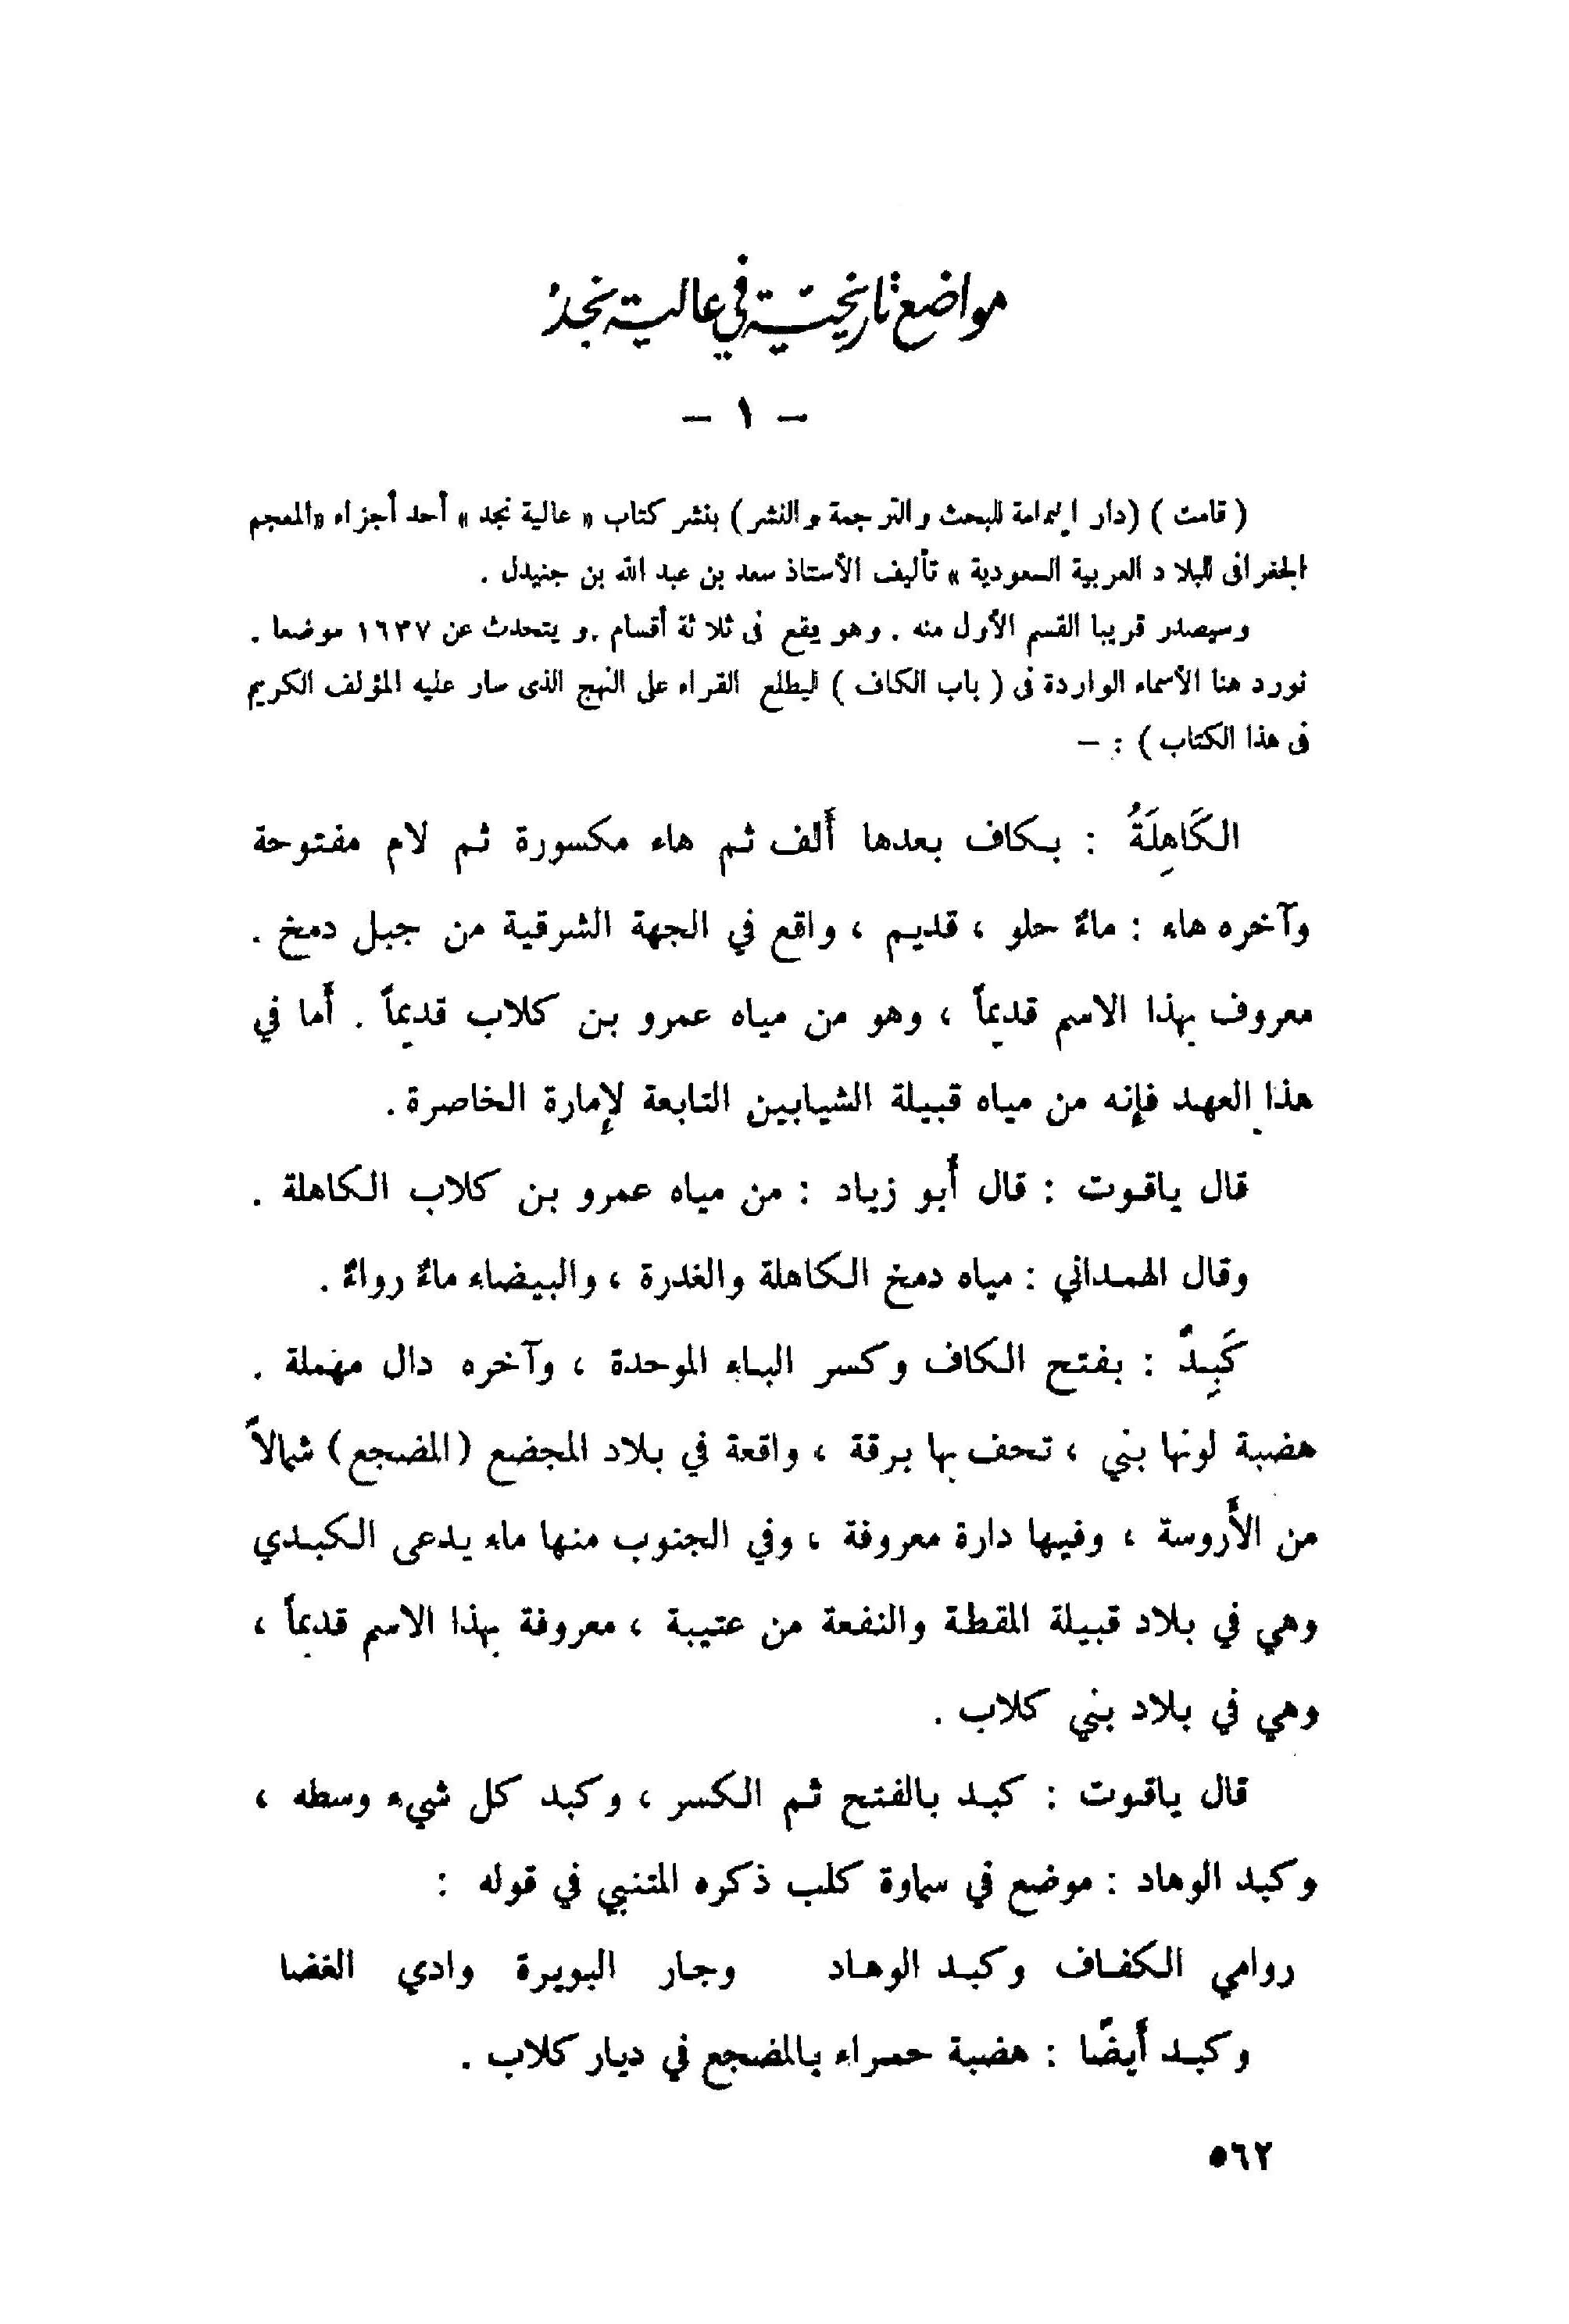 مواضع تاريخية في عالية نجد
— ١ —
( قامت ) (دار اليمامة للبحث والترجمة والنشر) بنشر كتاب « عالية نجد » أحد أجزاء «المعجم
الجغرافى للبلاد العربية السعودية » تأليف الأستاذ سعد بن عبد الله بن جنيدل .
وسيصدر قريبا القسم الأول منه . وهو يقع فى ثلاثة أقسام .و يتحدث عن ١٦٣٧ موضعا .
نورد هنا الأسماء الواردة فى ( باب الكاف ) ليطلع القراء على النهج الذى سار عليه المؤلف الكريم
فى هذا الكتاب ) : —
الكَاهِلَةُ : بكاف بعدها أَلف ثم هاء مكسورة ثم لام مفتوحة
وآخره هاء : ماءٌ حلو ، قديم ، واقع في الجهة الشرقية من جبل دمخ .
معروف بهذا الاسم قديماً ، وهو من مياه عمرو بن كلاب قديماً . أَما في
هذا العهد فإنه من مياه قبيلة الشيابين التابعة لإمارة الخاصرة .
قال ياقوت : قال أَبو زياد : من مياه عمرو بن كلاب الكاهلة .
وقال الهمداني : مياه دمخ الكاهلة والغدرة ، والبيضاء ماءٌ رواءٌ .
كَبِدٌ : بفتح الكاف وكسر الباء الموحدة ، وآخره دال مهملة .
هضبة لونها بني ، تحف بها برقة ، واقعة في بلاد المجضع (المضجع) شمالاً
من الأَروسة ، وفيها دارة معروفة ، وفي الجنوب منها ماء يدعى الكبدي
وهي في بلاد قبيلة المقطة والنفعة من عتيبة ، معروفة بهذا الاسم قديماً ،
وهي في بلاد بني كلاب .
قال ياقوت : كبد بالفتح ثم الكسر ، وكبد كل شيء وسطه ،
وكبد الوهاد : موضع في سماوة كلب ذكره المتنبي في قوله :
روامي الكفاف وكبد الوهاد وجار البويرة وادي الغضا
وكبد أَيضًا : هضبة حمراء بالمضجع في ديار كلاب .
٥٦٢